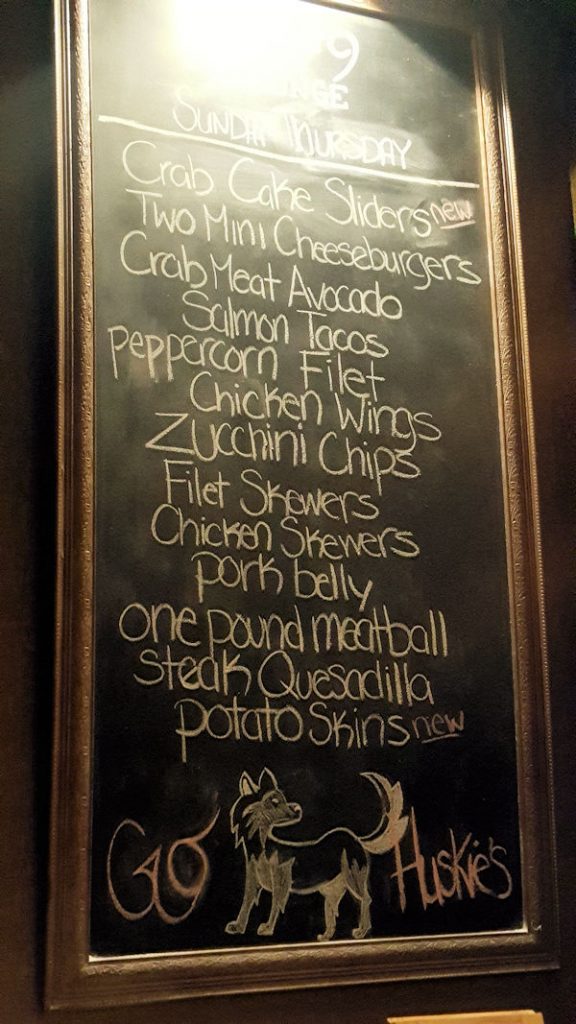 9
SUNDAY THURSDAY
Crab Cake Sliders new
Two Mini Cheeseburgers
Crab Meat Avocado
Salmon Tacos
peppercorn Filet
Chicken Wings
Zucchini Chips
Filet Skewers
Chicken Skewers
pork belly
one pound meatball
steak Quesadilla
potato skins new
GO Huskie's